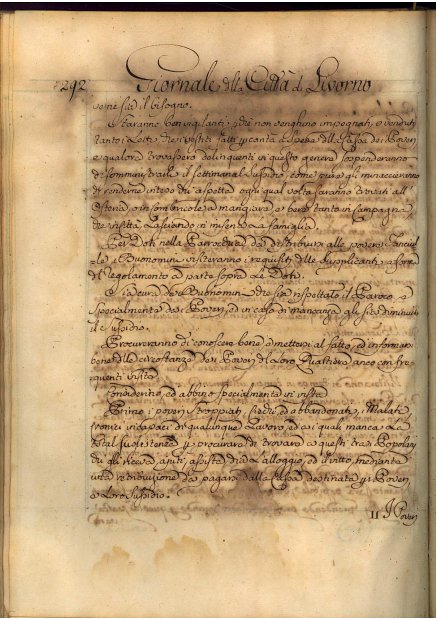 292 Giornale della Città di Livorno
come sità il bisogno.
Staranno ben vigilanti, che non venghino impegnati, o venduti
tanto i Letti, che i vestiti fatti per conto e spesa della Cassa dei Poveri
e qualora trovassero delinquenti in questo genere sospenderanno
di somministrarle il settimanal sussidio, come pure gli minacceranno
di renderne inteso chi aspetta ogni qual volta saranno trovati all'
osteria, o in combricole a mangiare e bere tanto in Campagna
che in Città, lasciando in miseria la famiglia.
Per Doti nella Parrocchia da distribuirsi alle povere Fanciul
le, i Buonomini visiteranno i requisiti delle supplicanti a forma
del Regolamento a parte sopra le Doti.
Sia cura dei Buonomini che sia rispettato il Paroco, e
specialmente dai Poveri, ed in caso di mancanza gli sità diminuito
il sussidio.
Procureranno di conoscere bene, e mettersi al fatto, ed informarsi
bene delle circostanze dei Poveri del loro Quartiere anco con fre
quenti visite
Conderito, ed abbino specialmente in vista
Primo i poveri stroppiati, ciechi, ed abbandonati, Malati
cronici incapaci di qualunque Lavoro, ed ai quali manca la
total sussistenza, si procurerà di trovare a questi tra i Popolani
chi gli riceva, ajuti, assista, dia l'alloggio, ed il vitto, mediante
una retribuzione da pagarsi dalla Cassa destinata per i Poveri
a Loro Sussidio.
II I Poveri